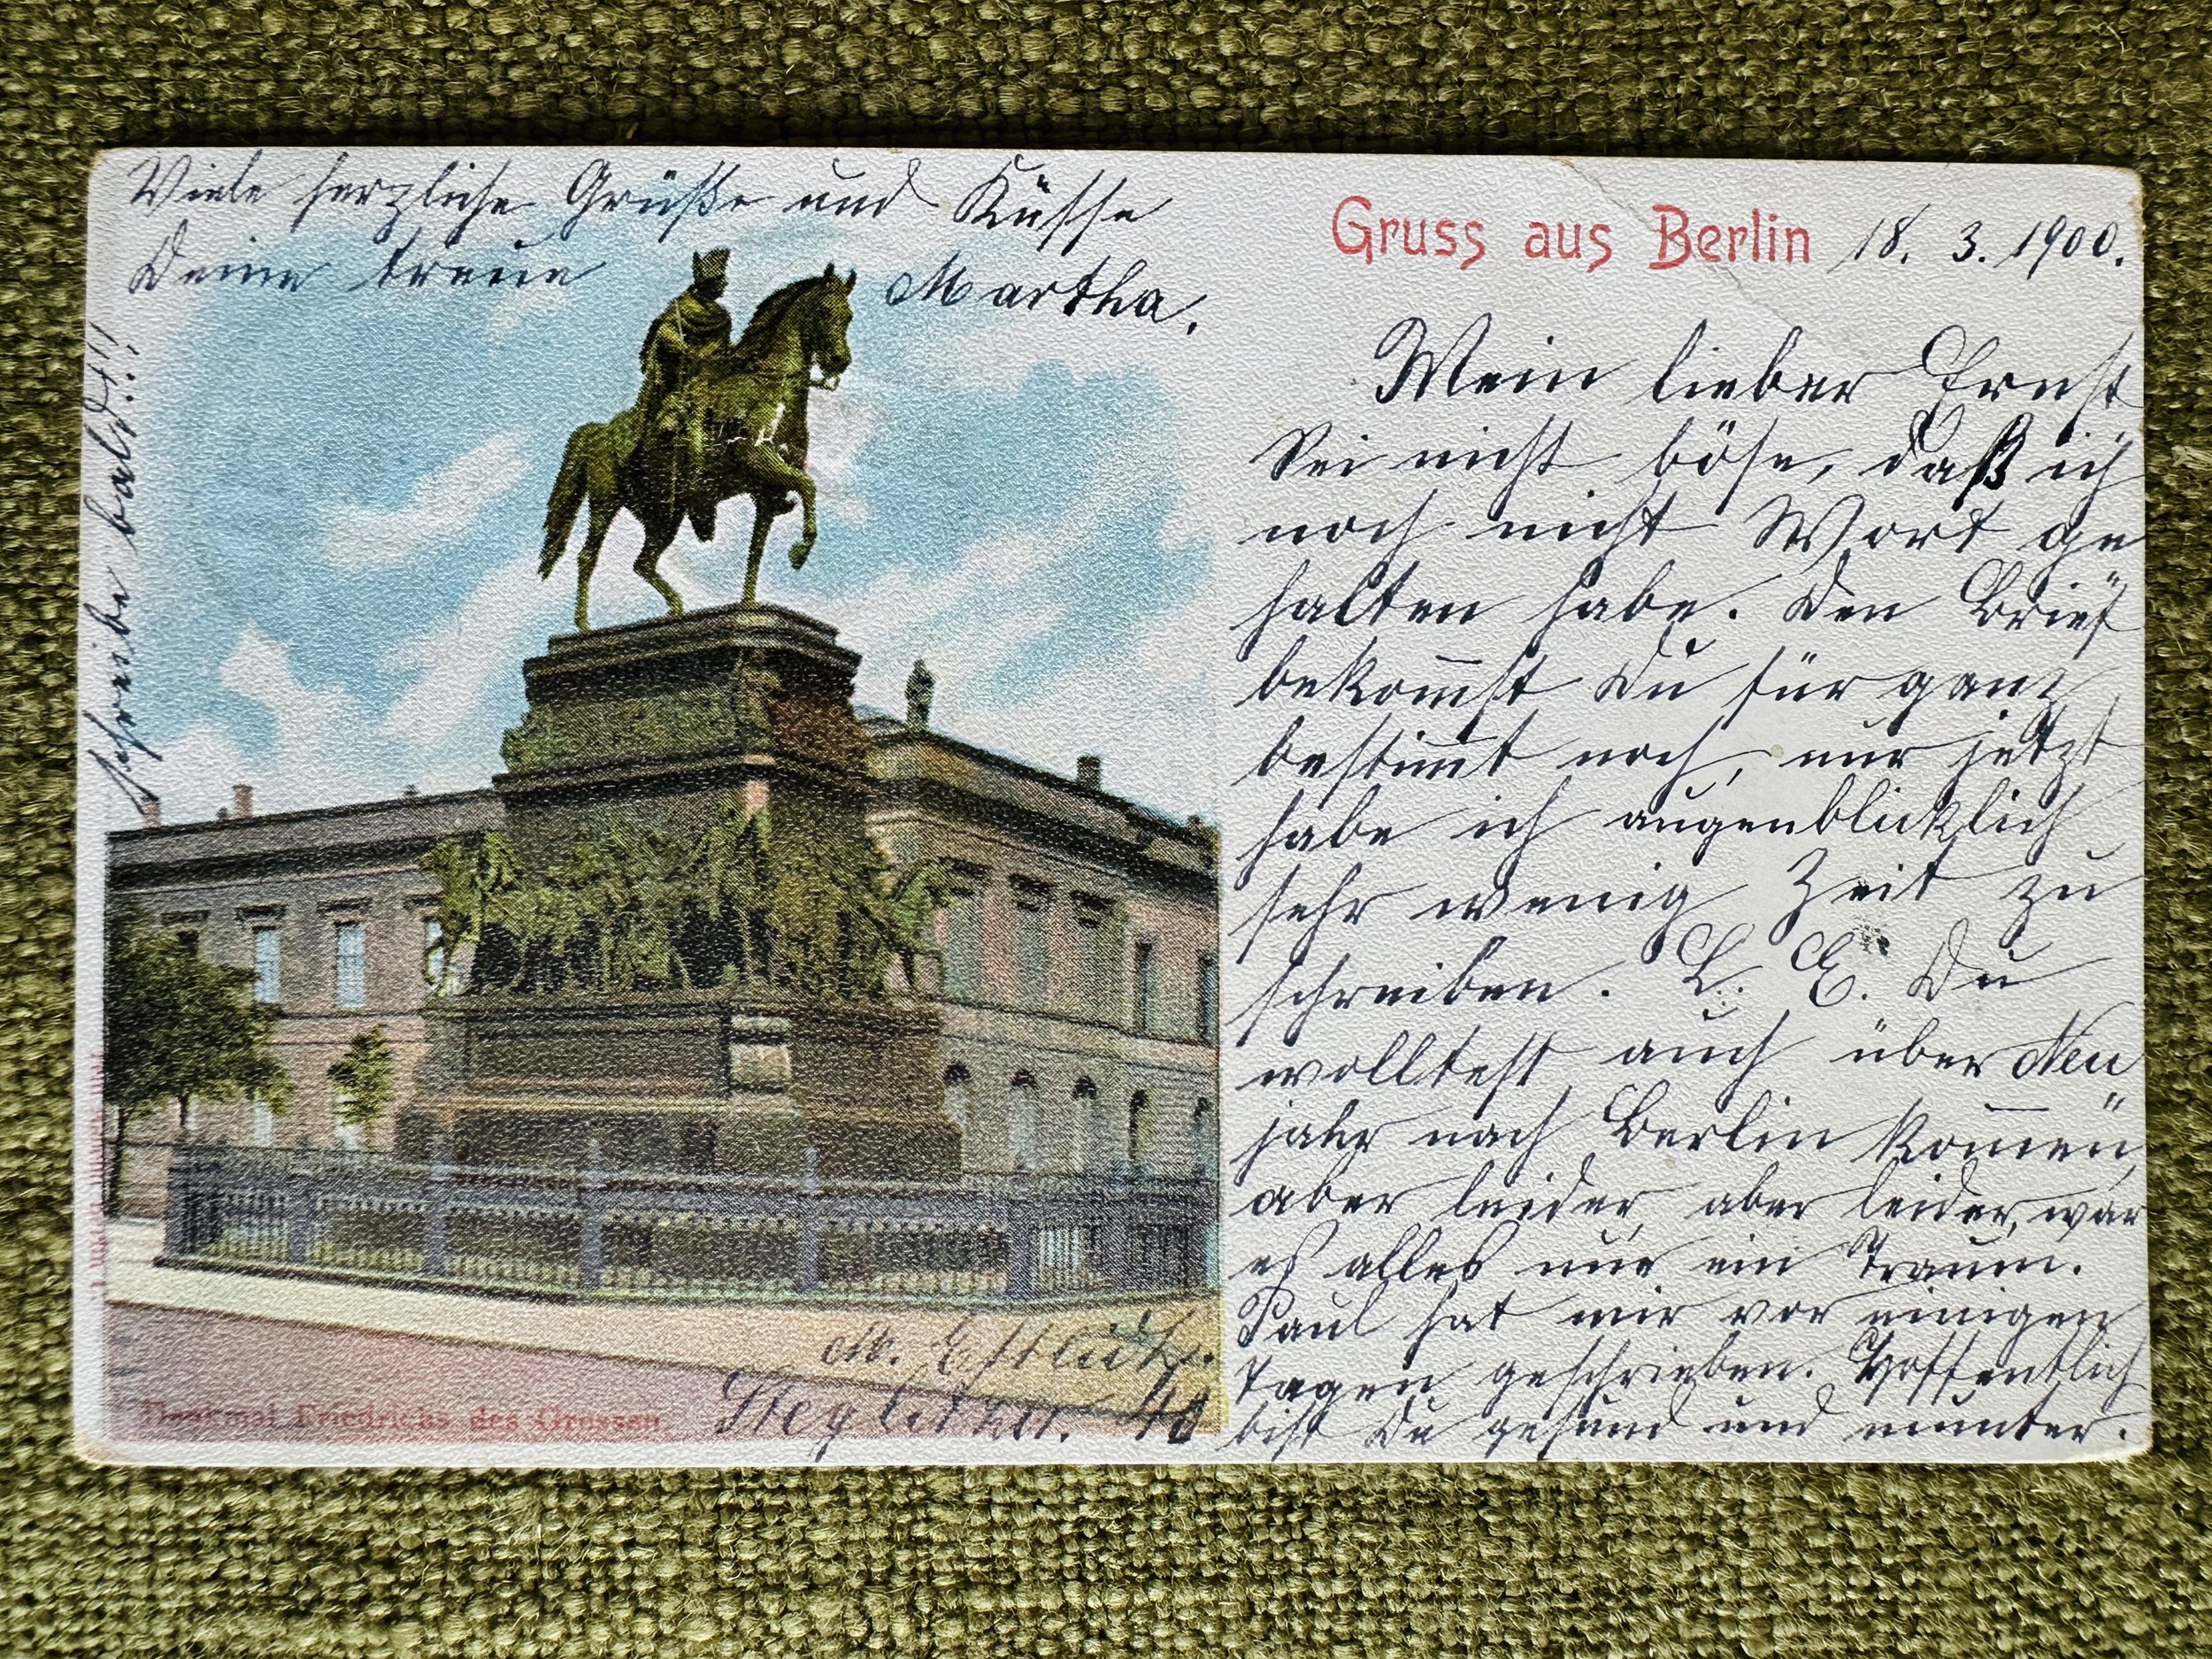 Gruss aus Berlin 18. 3. 1900.
Mein lieber Ernst
Sei nicht böse, daß ich
noch nicht Wort ge
halten habe. Den Brief
bekom̅st Du für ganz
bestim̅t noch, nur jetzt
habe ich augenblicklich
sehr wenig Zeit zu
schreiben. L. E. Du
wolltest auch über Neu
jahr nach Berlin kom̅en,
aber leider, aber leider, war
es alles nur ein Traum.
Paul hat mir vor einigen
Tagen geschrieben. Hoffentlich
bist Du gesund und munter.
Viele herzliche Grüße und Küsse
Deine treue Martha.
schreibe bald!!!
M.
Steglitzerstr. 40
Denkmal Friedrichs des Grossen